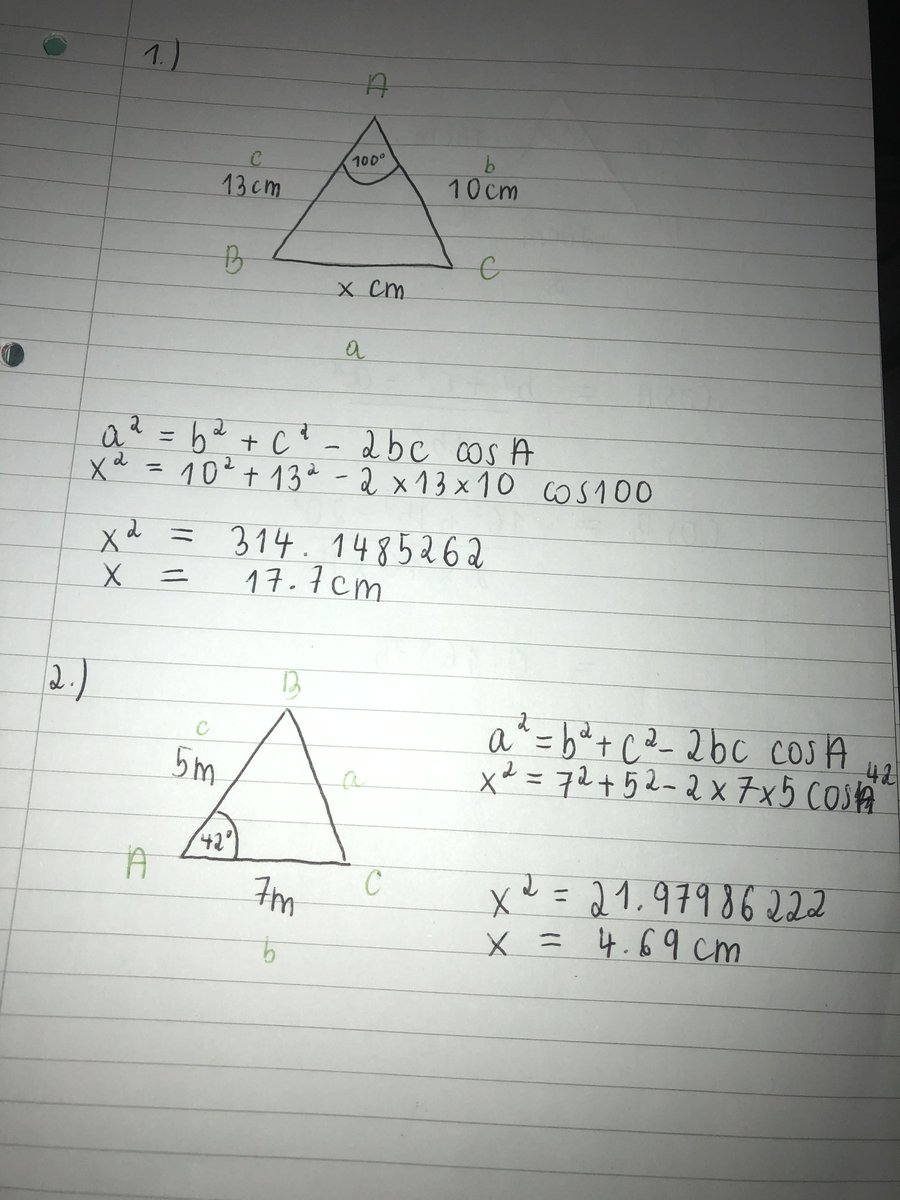 1.)
A
100°
c
b
13cm
10cm
B
C
x cm
a
a² = b² + c² - 2bc cosA
x² = 10² + 13² - 2 x 13 x 10 cos100
x² = 314.1485262
x = 17.7cm
2.)
B
c
5m
a
42°
A
C
7m
b
a² = b² + c² - 2bc cosA
x² = 7² + 5² - 2 x 7 x 5 cos 42
x² = 21.97986222
x = 4.69 cm